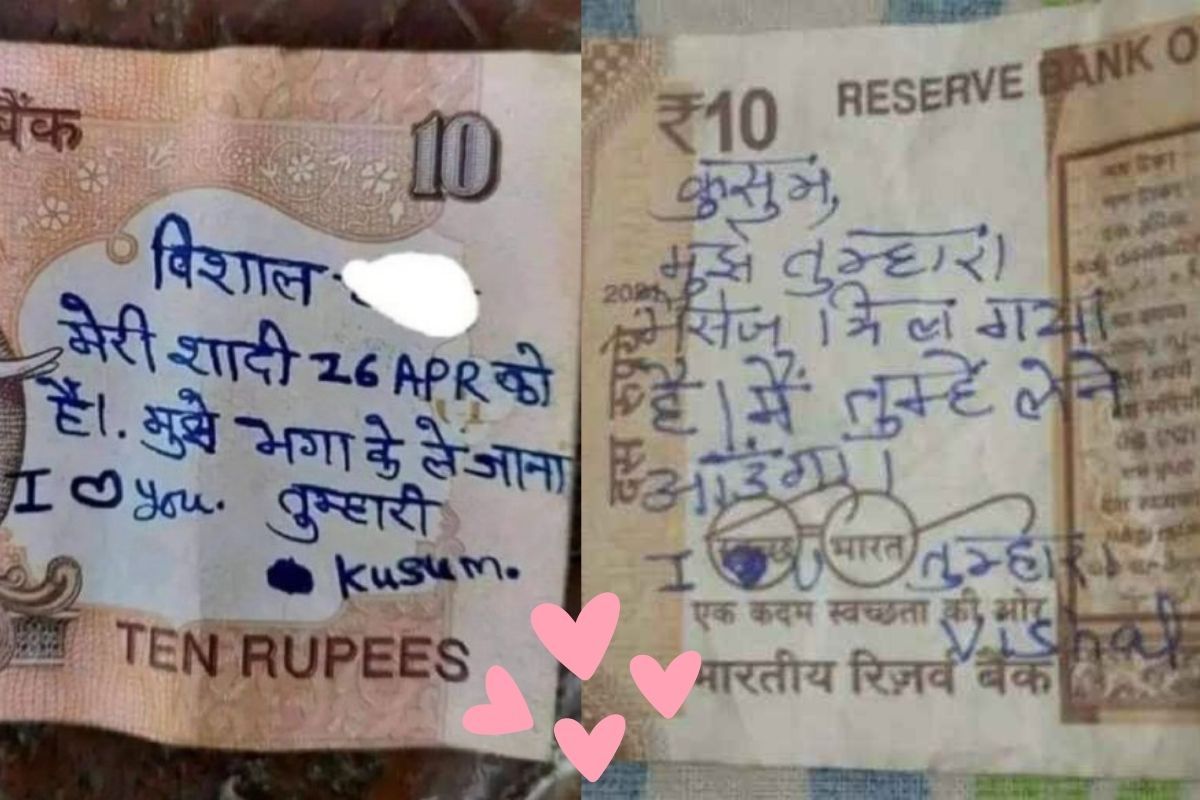 बैंक
10
विशाल
मेरी शादी 26 APR को
है।. मुझे भगा के ले जाना
I ♡ you. तुम्हारी
kusum.
TEN RUPEES
₹10
RESERVE BANK O
कुसुम,
मुझे तुम्हारा
मैसेज मिल गया
है। मैं तुम्हें लेने
आउंगा।
I U तुम्हारा
Vishal
दस रुपये
स्वच्छ भारत
एक कदम स्वच्छता की ओर
भारतीय रिज़र्व बैंक